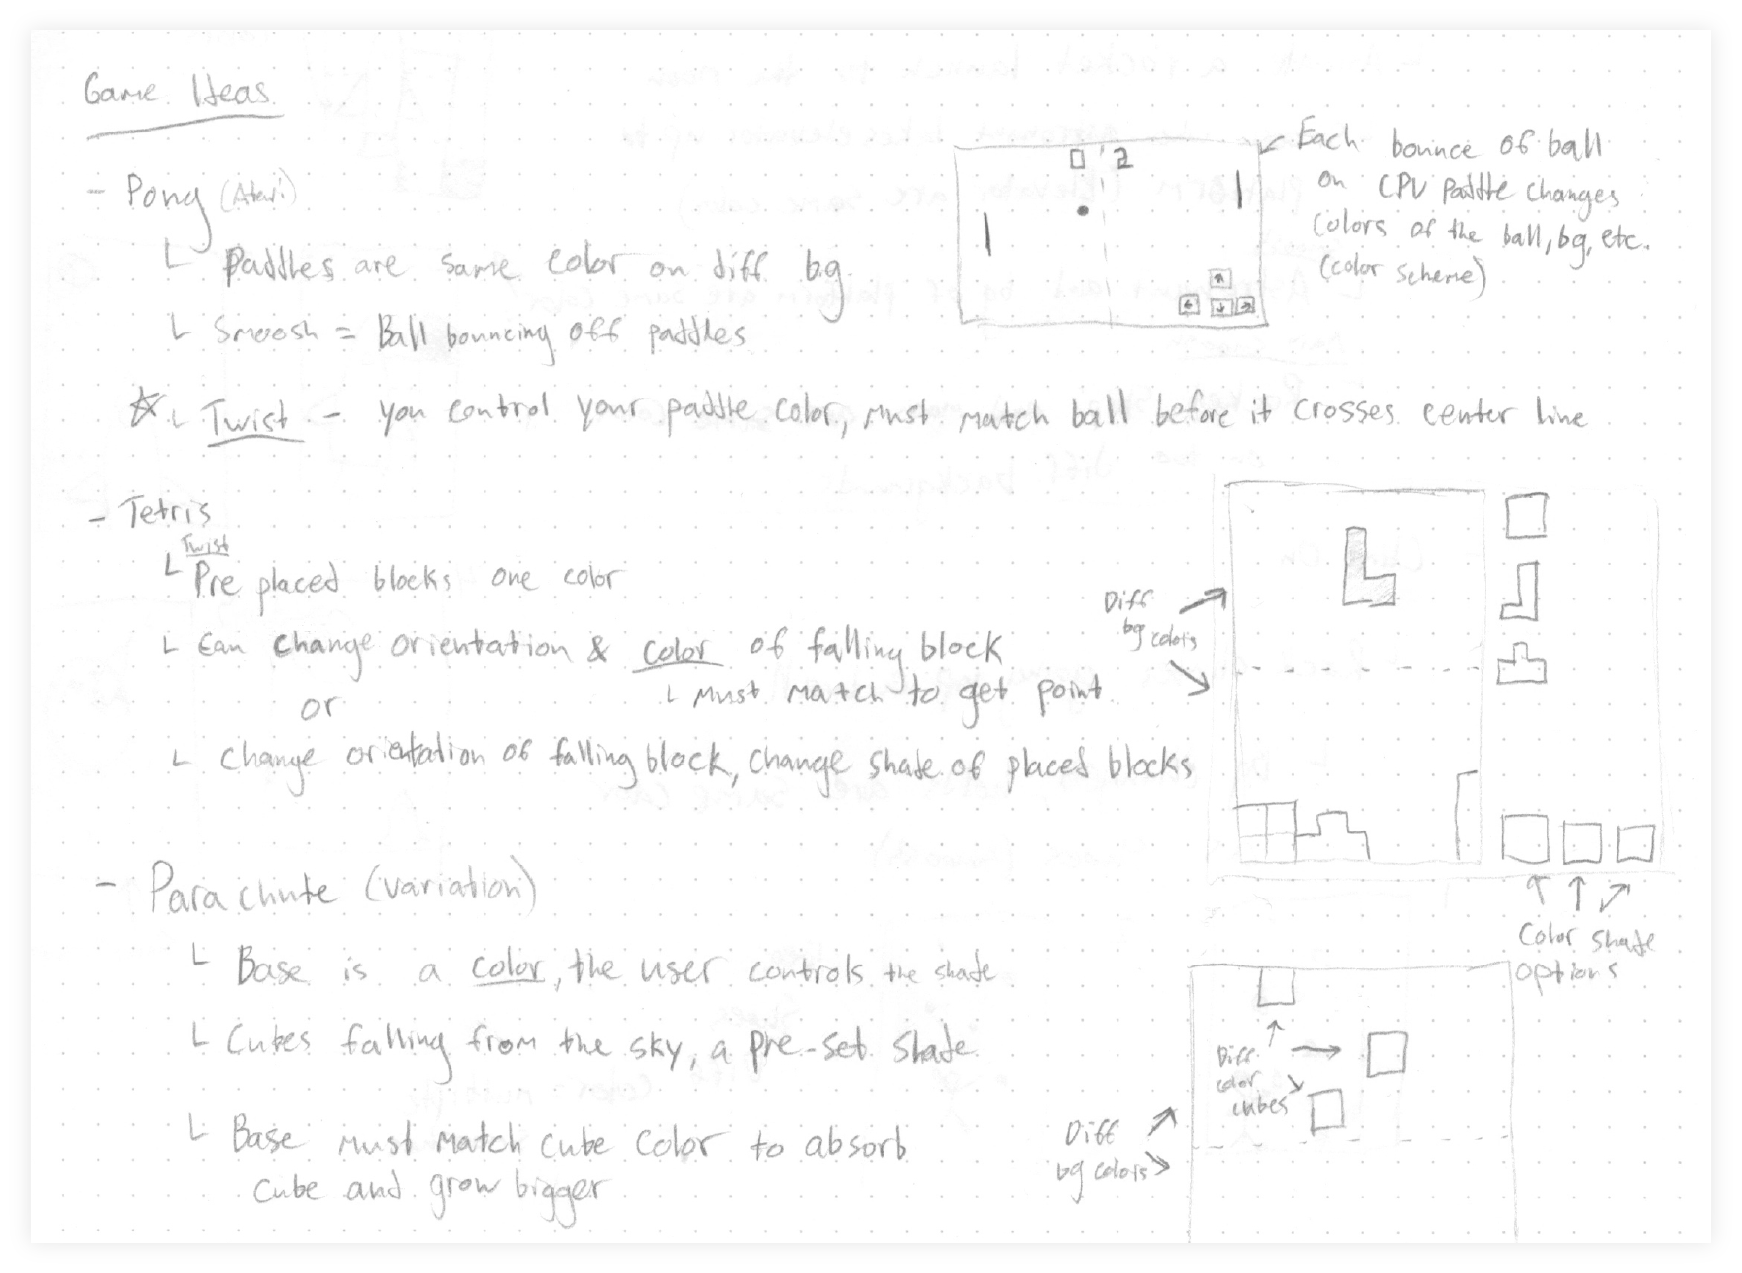 Game Ideas
- Pong (Atari)
└ Paddles are same color on diff bg.
└ Smoosh = Ball bouncing off paddles
☆ └ Twist - you control your paddle color, must match ball before it crosses center line
0 2
Each bounce of ball
on CPU paddle changes
colors of the ball, bg, etc.
(color scheme)
- Tetris
Twist
└ Pre placed blocks one color
└ Can change orientation & color of falling block
└ must match to get point.
or
└ change orientation of falling block, change shade of placed blocks
Diff
bg colors
Color shade
options
- Parachute (variation)
└ Base is a color, the user controls the shade
└ Cubes falling from the sky, a pre-set shade
└ Base must match cube color to absorb
cube and grow bigger
Diff
color
cubes
Diff
bg colors